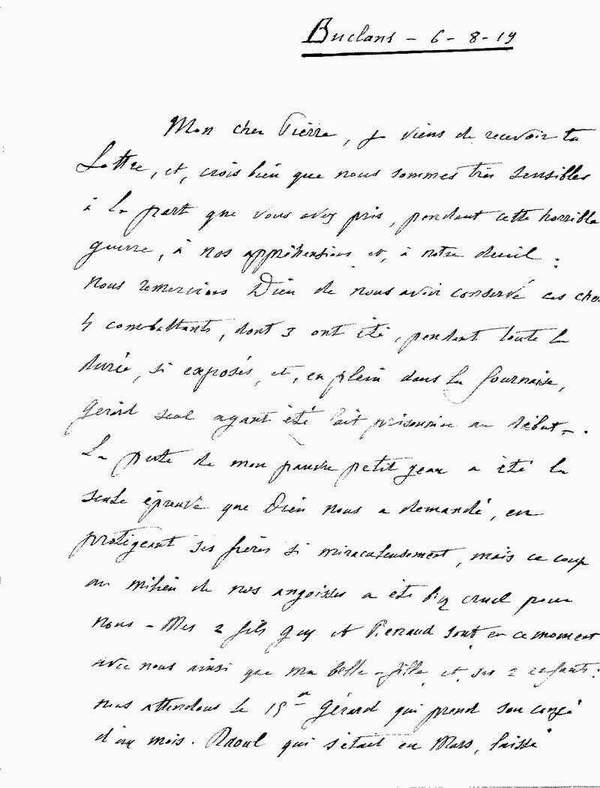 Buclans - 6 - 8 - 19
Mon cher Pierre, je viens de recevoir ta
Lettre, et, crois bien que nous sommes très sensibles
à la part que vous avez pris, pendant cette horrible
guerre, à nos appréhensions et, à notre deuil :
nous remercions Dieu de nous avoir conservé ces cher
4 combattants, dont 3 ont été, pendant toute la
durée, si exposés, et, en plein dans la fournaise,
Gérard seul ayant été fait prisonnier au début -.
La perte de mon pauvre petit Jean a été la
seule épreuve que Dieu nous a demandé, en
protégeant ses frères si miraculeusement, mais ce coup
au milieu de nos angoisses a été bien cruel pour
nous - Mes 2 fils Guy et sont en ce moment
avec nous ainsi que ma belle-fille et ses 2 enfants :
nous attendons le 15 Gérard qui prend son congé
d'un mois. Raoul qui s'était en Mars, laissé